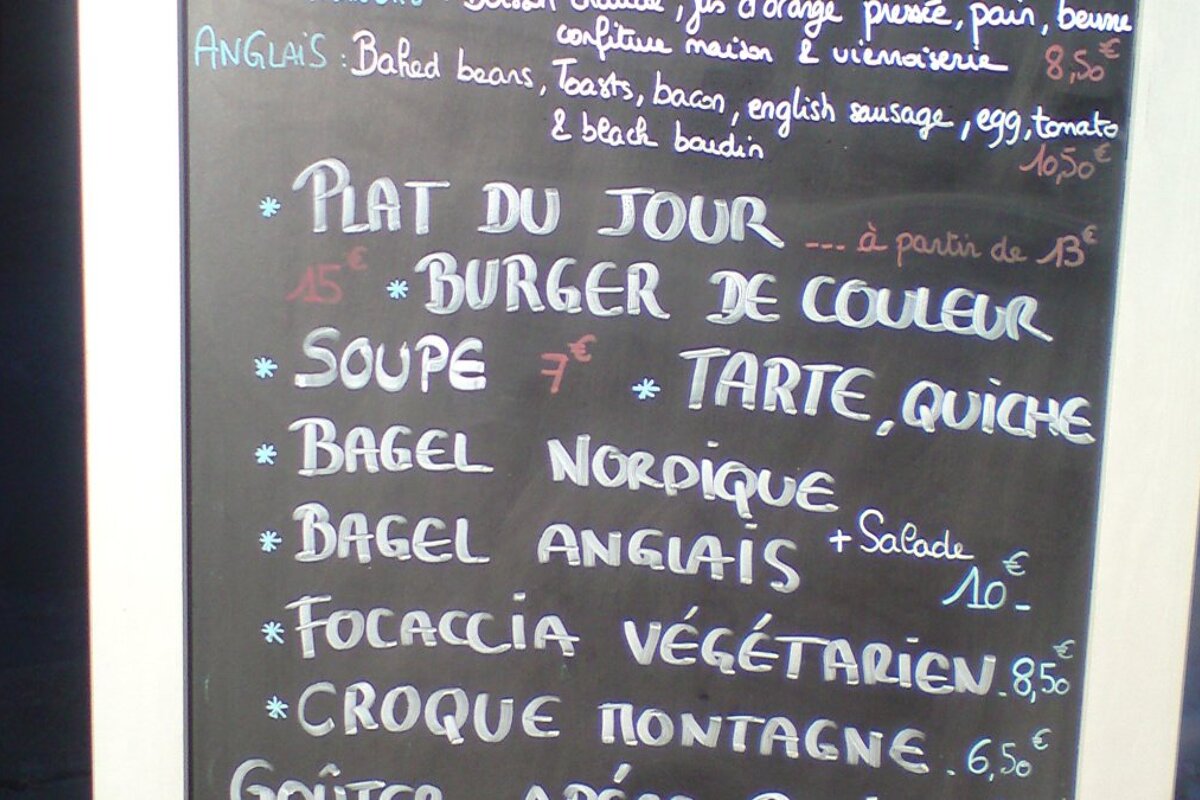 Boisson chaude, jus d'orange pressée, pain, beurre
confiture maison & viennoiserie 8,50€
ANGLAIS : Baked beans, Toasts, bacon, english sausage, egg, tomato
& black boudin
10,50€
* PLAT DU JOUR --- à partir de 13€
15€ * BURGER DE COULEUR
* SOUPE 7€ * TARTE, QUICHE
* BAGEL NORDIQUE
* BAGEL ANGLAIS + Salade
10€-
* FOCACCIA VÉGÉTARIEN. 8,50€
* CROQUE MONTAGNE. 6,50€
GOÛTER